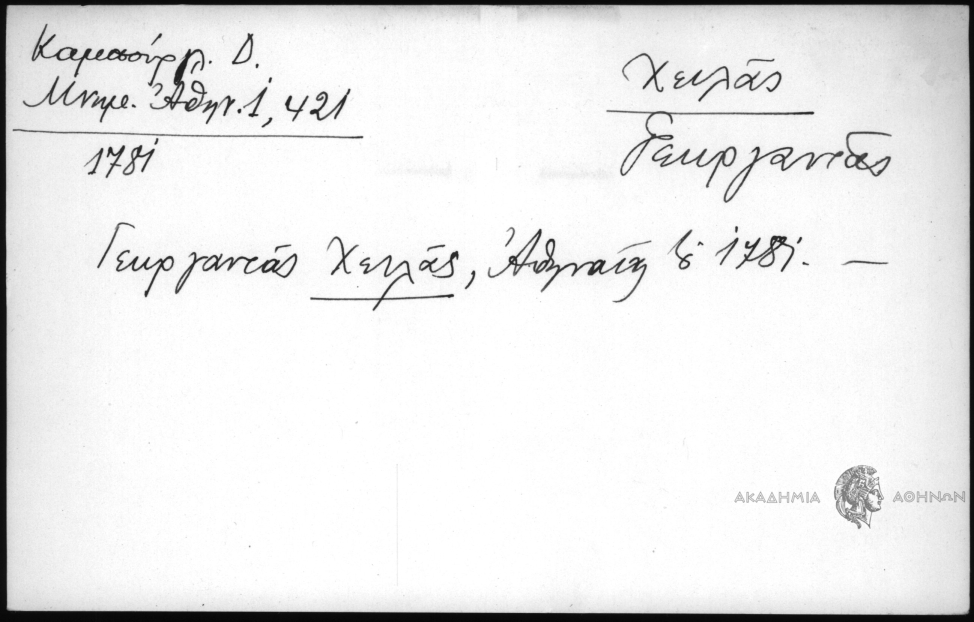 Καμπούρ λ. Δ.
Μνημ. Ἀθην. 1, 421
1781
Χειλᾶς
Γεωργαντᾶς
Γεωργαντᾶς Χειλᾶς, Ἀθηναῖος 1781. —
ΑΚΑΔΗΜΙΑ ΑΘΗΝΩΝ